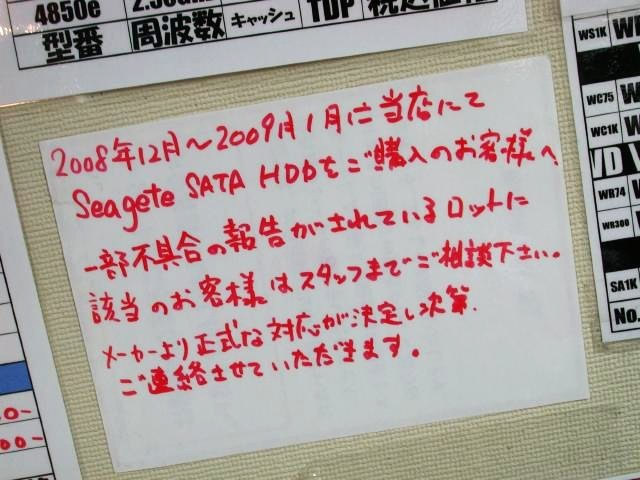 4850e
型番 周波数 キャッシュ TDP
2008年12月～2009月1月に当店にて
Seagete SATA HDDをご購入のお客様へ
一部不具合の報告がされているロットに
該当のお客様はスタッフまでご相談下さい。
メーカーより正式な対応が決定し次第、
ご連絡させていただきます。
WS1K
WC75
WC1K
WR74
WR300
SA1K
No.